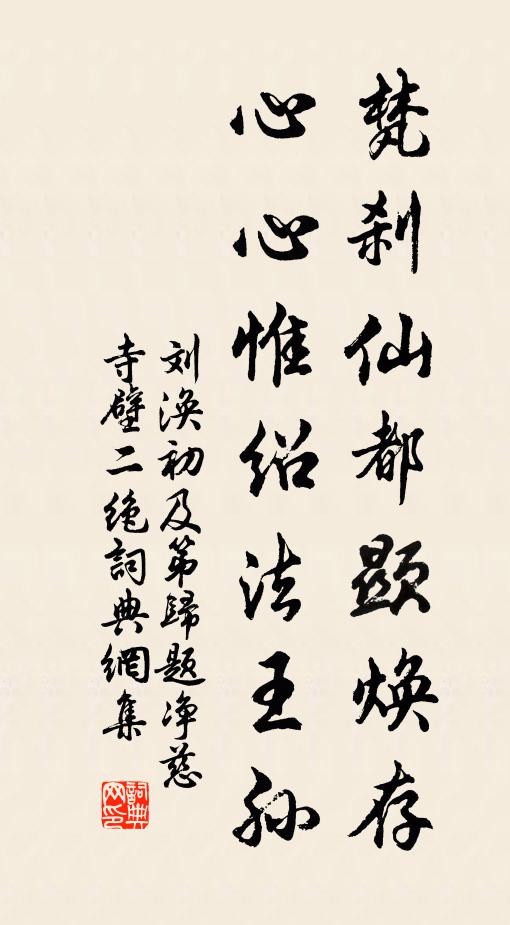 梵刹仙都顕焕存
心心惟绍法王孙
刘涣初及第歸题净慈
寺壁二绝詞典網集
詞典网印